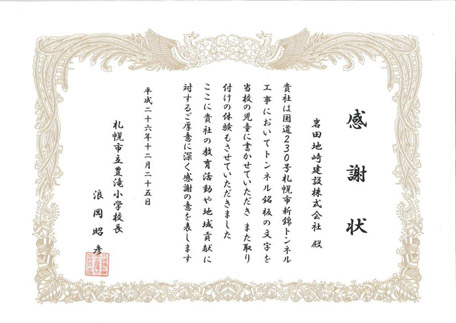 感謝状
岩田地崎建設株式会社 殿
貴社は国道230号札幌市新錦トンネル
工事においてトンネル銘板の文字を
当校の児童に書かせていただき また取り
付けの体験もさせていただきました
ここに貴社の教育活動や地域貢献に
対するご厚意に深く感謝の意を表します
平成二十六年十二月二十五日
札幌市立豊滝小学校長
浪岡昭彦